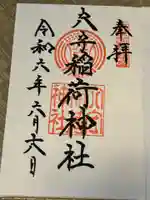 奉拝
穴守稲荷神社
令和六年六月六日